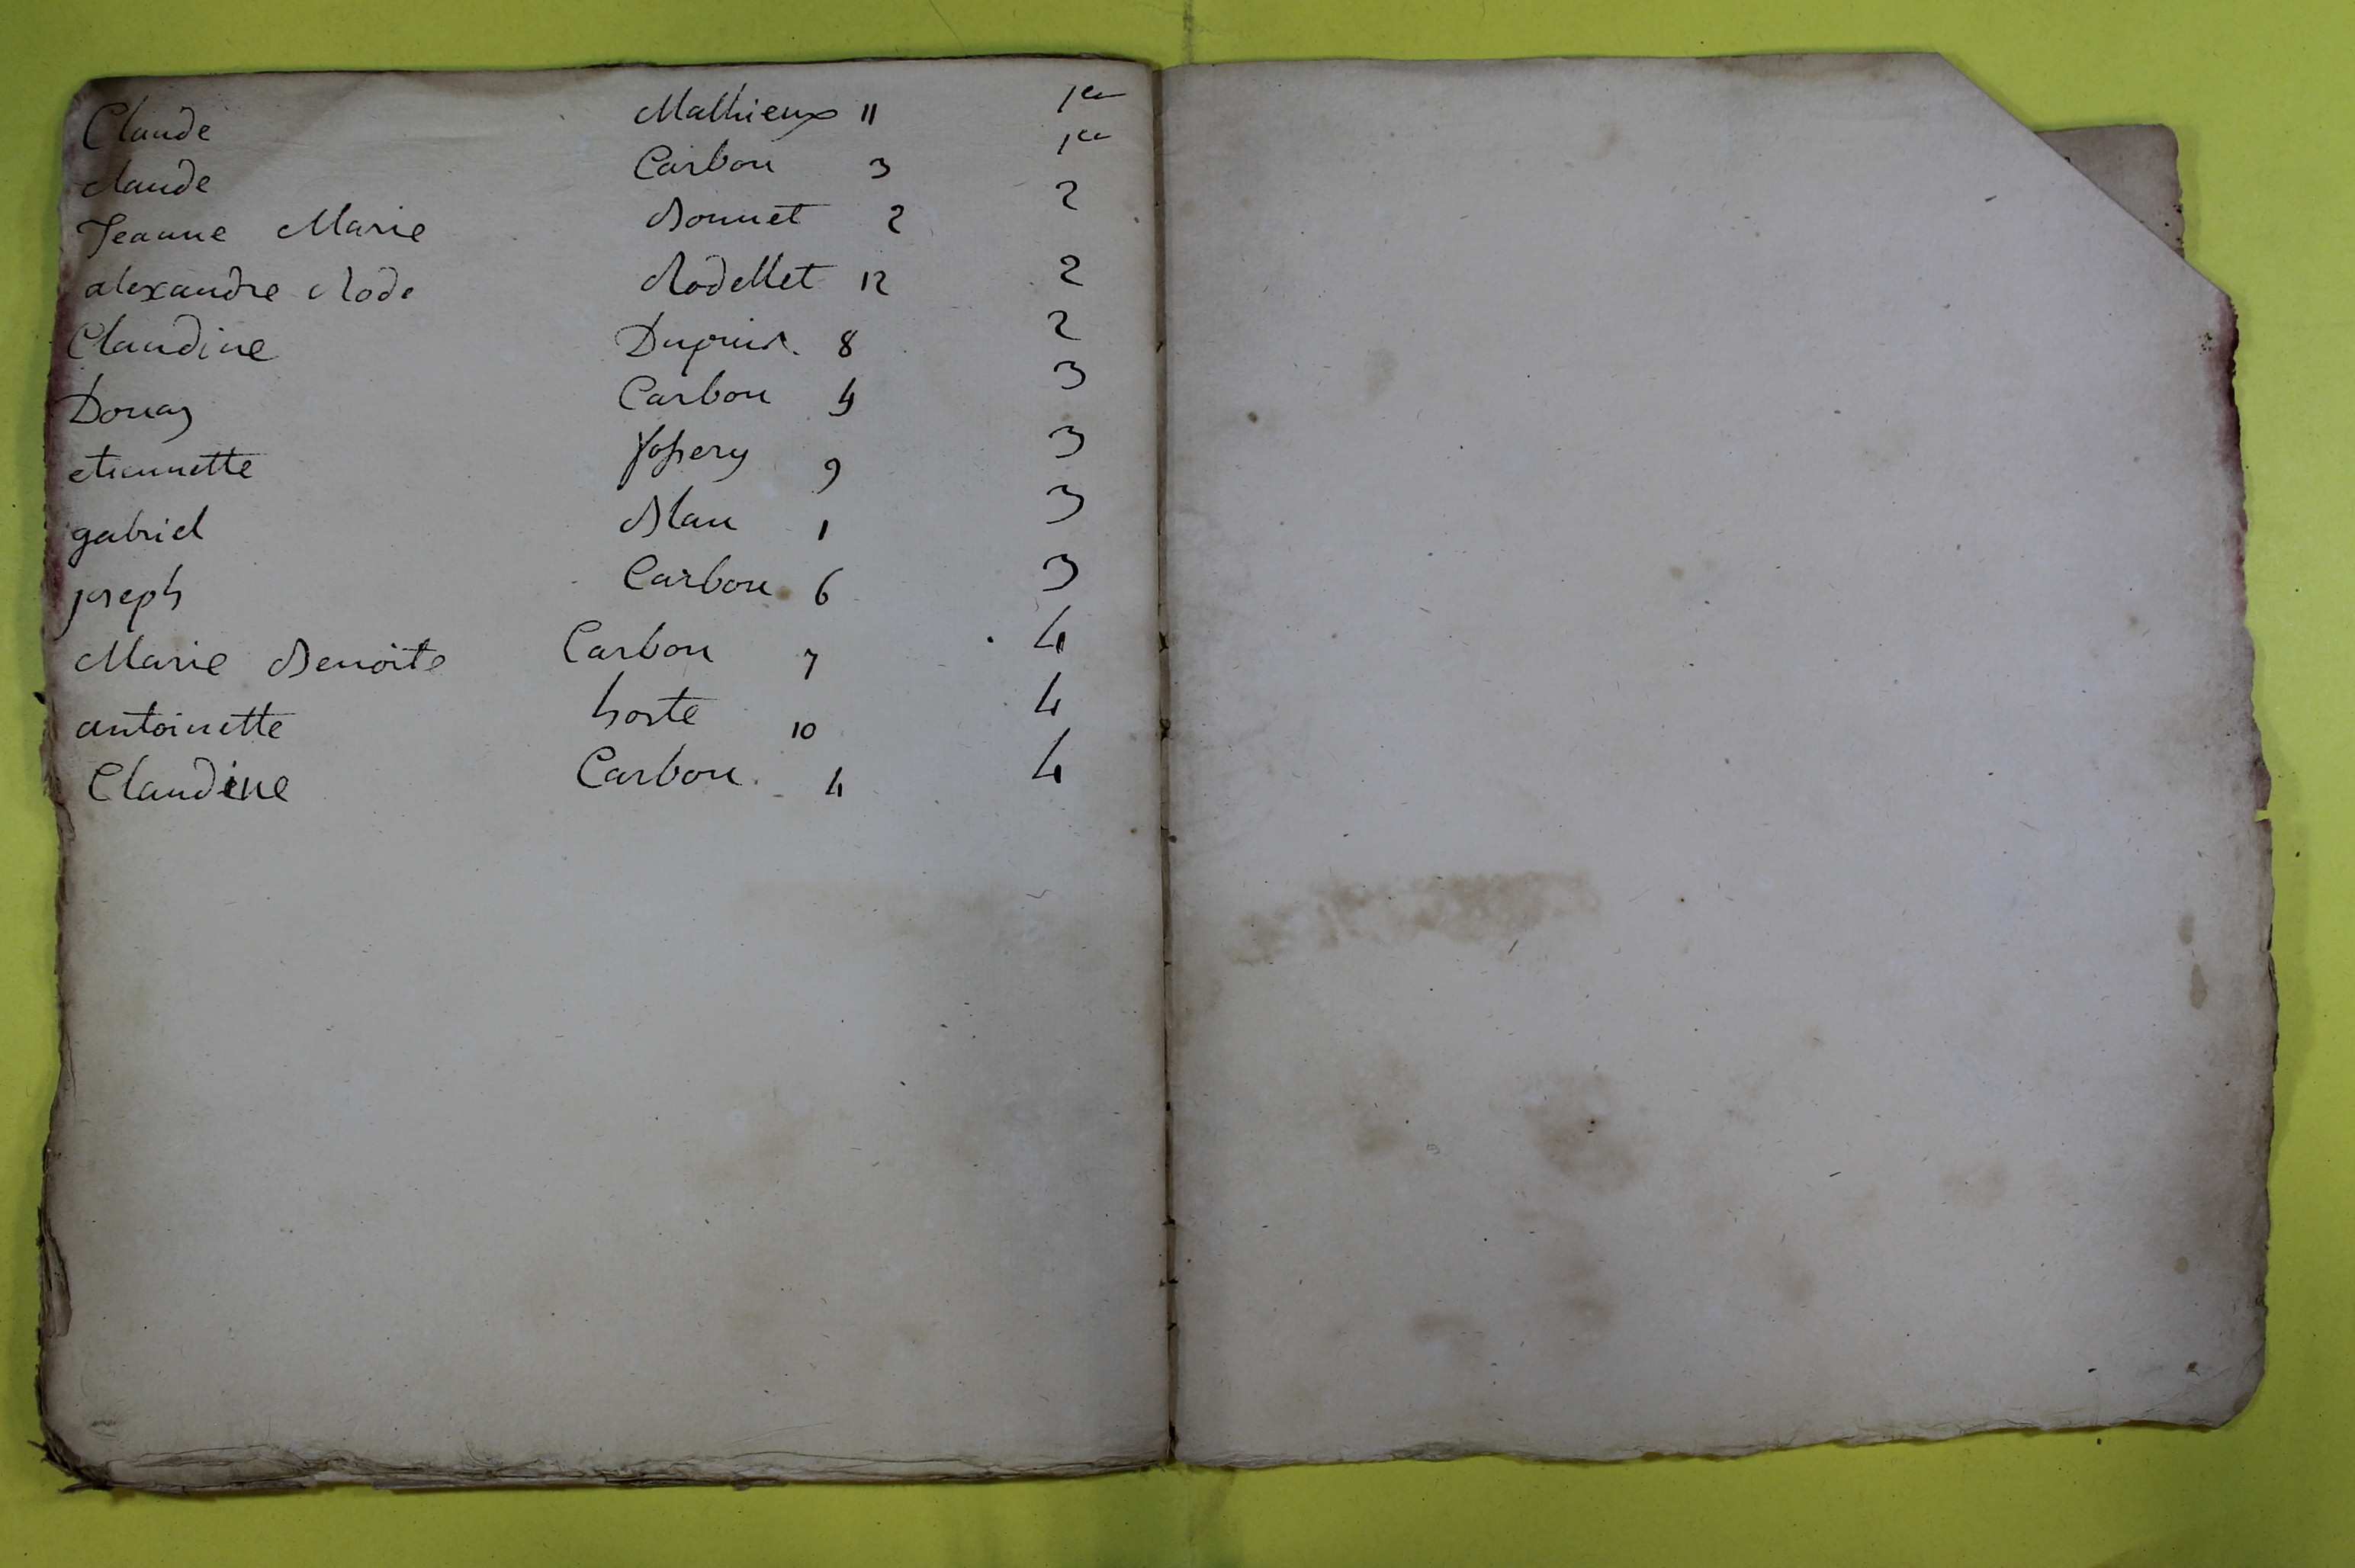 Claude Mathieux 11 1er
Claude Carbon 3 1er
Jeanne Marie Bonnet 2 2
alexandre Rode Rodellet 12 2
Claudine Dupuis. 8 2
Carbon 3
etiennette 9 3
gabriel Blan 1 3
joseph Carbon 6 3
Marie Benoite Carbon 7 4
antoinette hoste 10 4
Claudine Carbon. 4 4